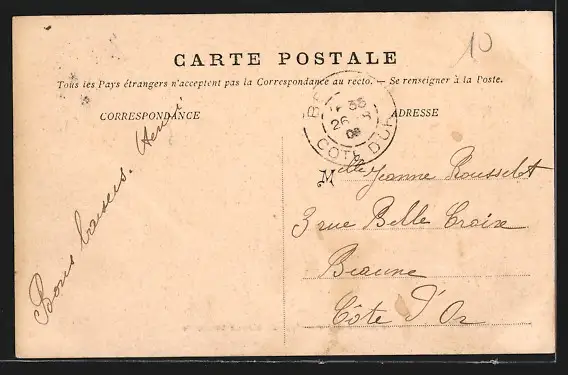 10
CARTE POSTALE
Tous les Pays étrangers n'acceptent pas la Correspondance au recto. — Se renseigner à la Poste.
CORRESPONDANCE
ADRESSE
26
08
COTE D'OR
Bons baisers. Henri
Melle Jeanne Rousselot
3 rue Belle Croix
Beaune
Côte d'Or